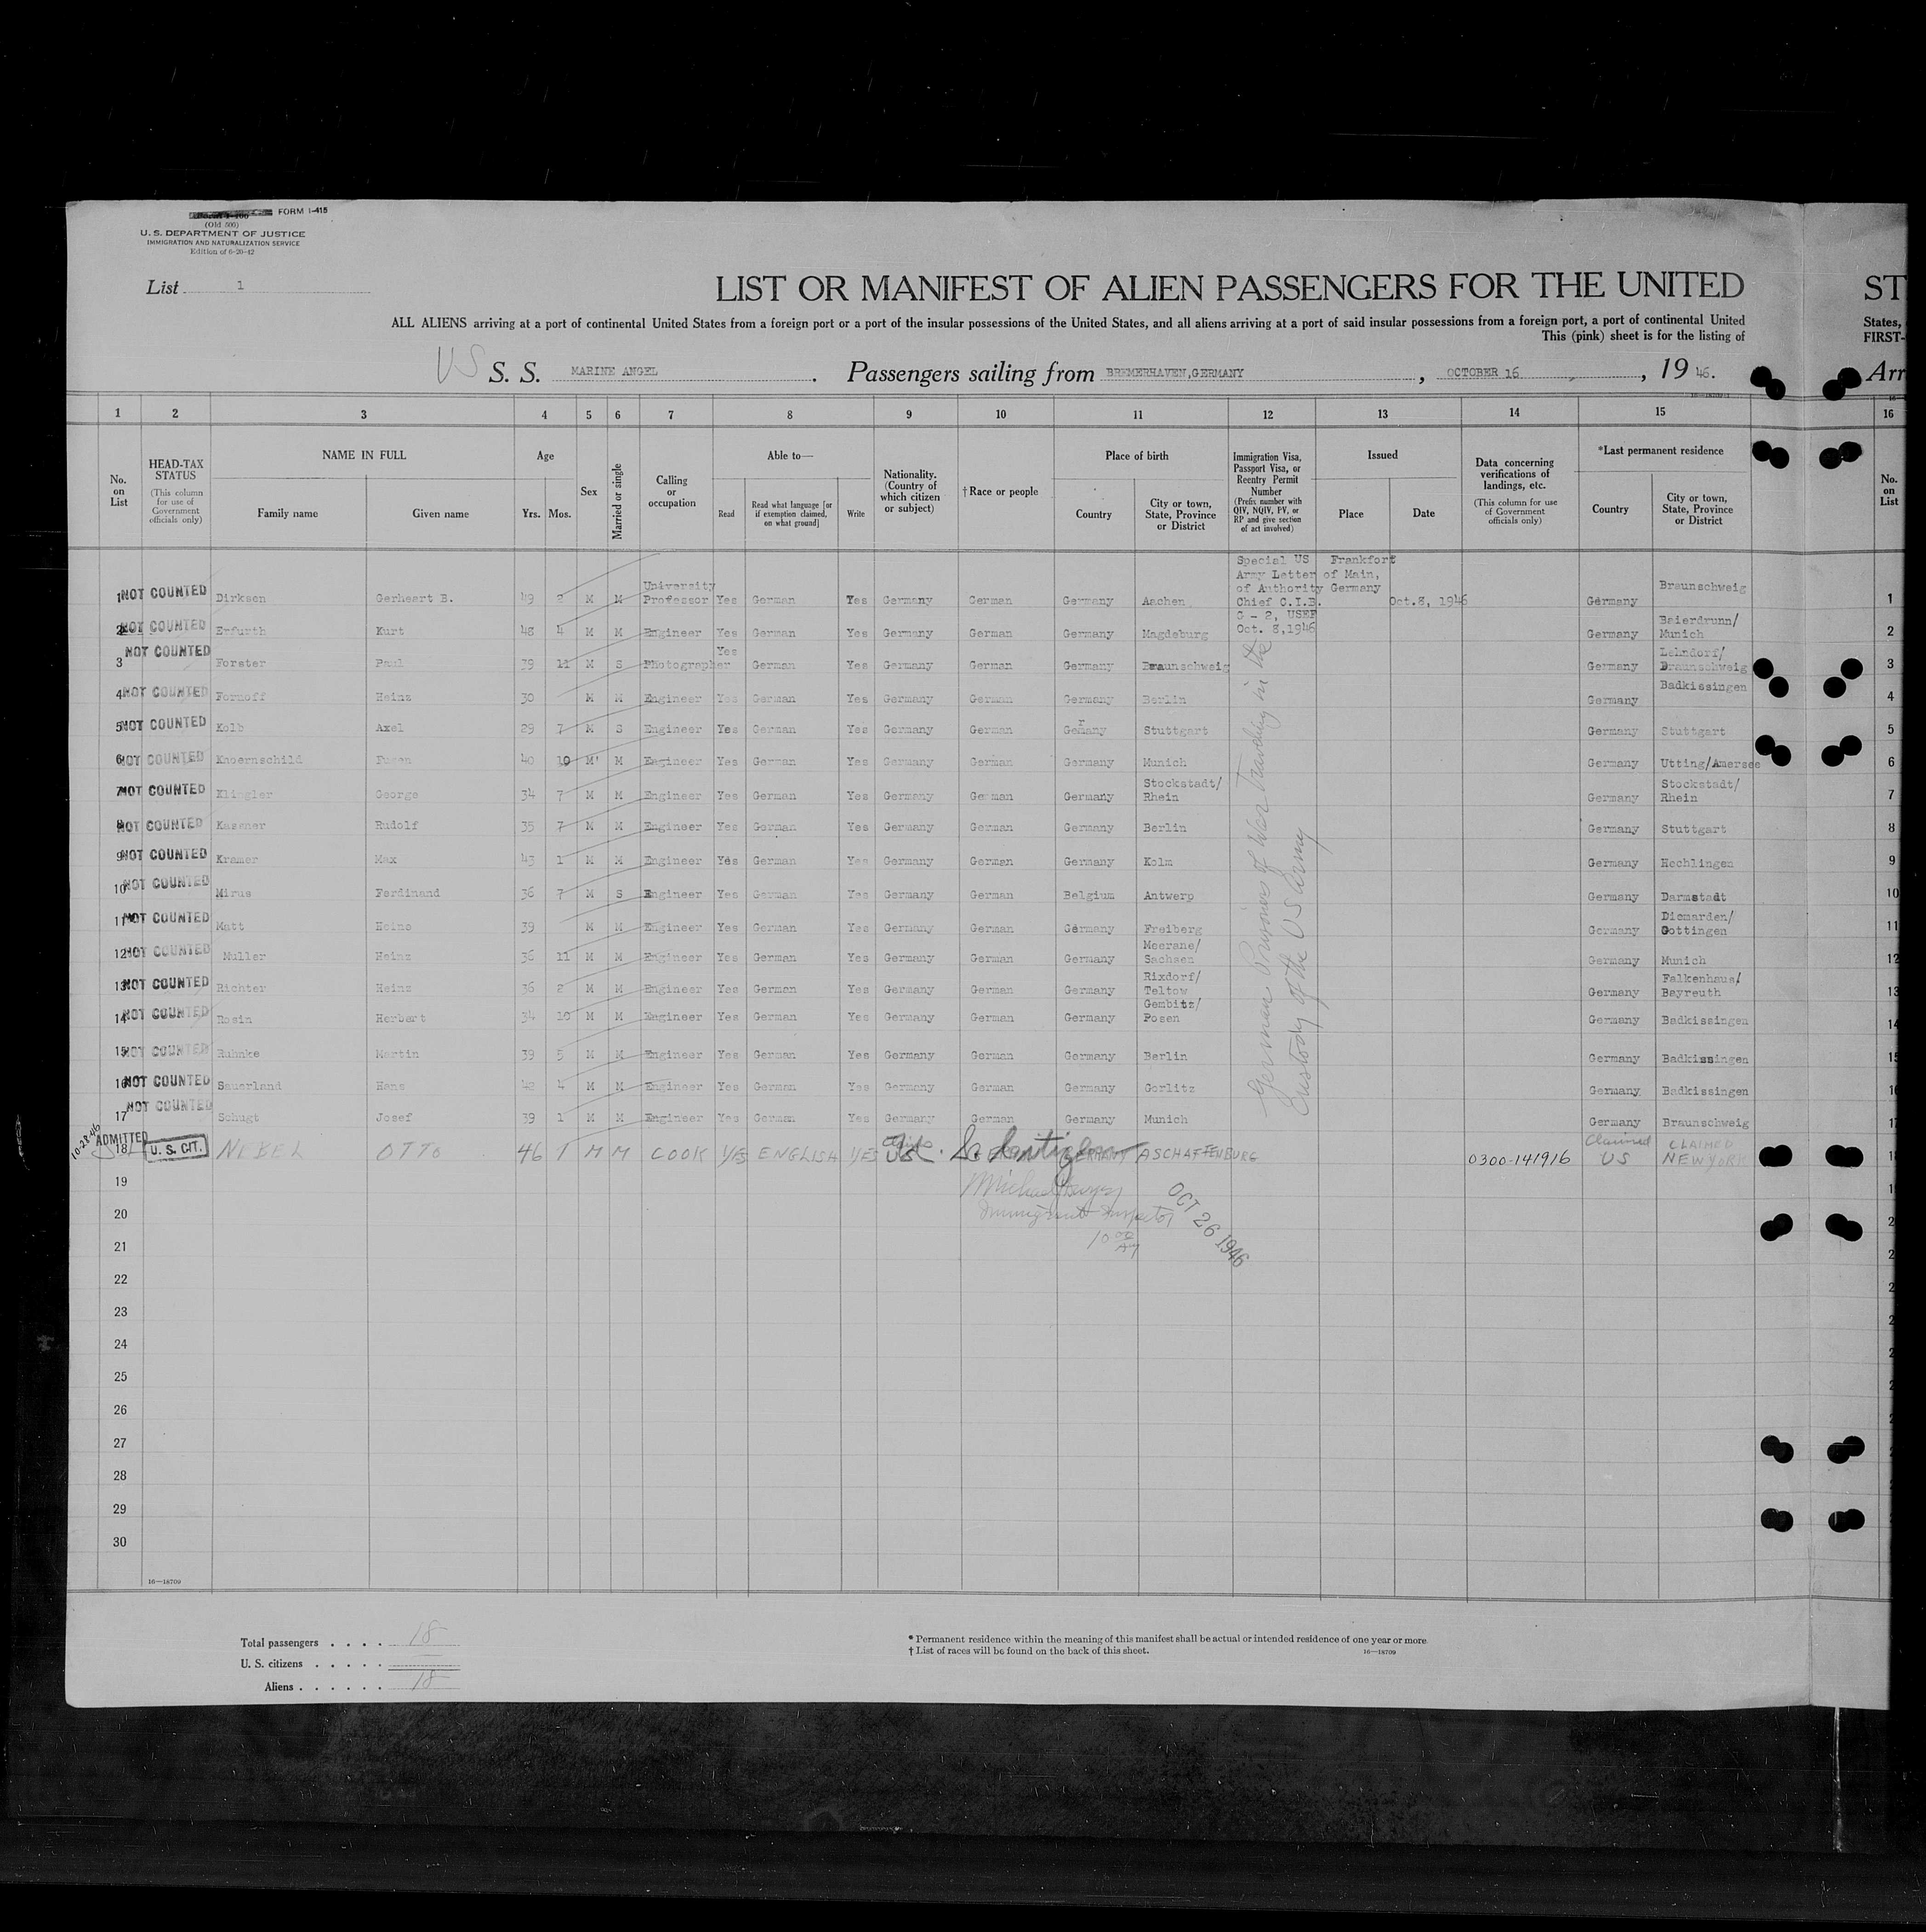 FORM I-415
(Old 500)
U. S. DEPARTMENT OF JUSTICE
IMMIGRATION AND NATURALIZATION SERVICE
Edition of 6-20-42
List 1
LIST OR MANIFEST OF ALIEN PASSENGERS FOR THE UNITED ST
ALL ALIENS arriving at a port of continental United States from a foreign port or a port of the insular possessions of the United States, and all aliens arriving at a port of said insular possessions from a foreign port, a port of continental United States,
This (pink) sheet is for the listing of FIRST-
US S. S. MARINE ANGEL . Passengers sailing from BREMERHAVEN,GERMANY , OCTOBER 16 , 19 46. Arr
1 2 3 4 5 6 7 8 9 10 11 12 13 14 15 16
No. on List
HEAD-TAX STATUS (This column for use of Government officials only)
NAME IN FULL Family name Given name
Age Yrs. Mos.
Sex
Married or single
Calling or occupation
Able to— Read Read what language [or if exemption claimed, on what ground] Write
Nationality. (Country of which citizen or subject)
†Race or people
Place of birth Country City or town, State, Province or District
Immigration Visa, Passport Visa, or Reentry Permit Number (Prefix number with QIV, NQIV, PV, or RP and give section of act involved)
Issued Place Date
Data concerning verifications of landings, etc. (This column for use of Government officials only)
*Last permanent residence Country City or town, State, Province or District
No. on List
Special US Army Letter of Authority Chief C.I.B. G - 2, USEF Oct. 8,1946
Frankfort of Main, Germany Oct.8, 1946
1 NOT COUNTED Dirksen Gerheart B. 49 2 M M University Professor Yes German Yes Germany German Germany Aachen Germany Braunschweig 1
2 NOT COUNTED Erfurth Kurt 48 4 M M Engineer Yes German Yes Germany German Germany Magdeburg Germany Baierdrunn/ Munich 2
3 NOT COUNTED Forster Paul 39 11 M S Photographer Yes German Yes Germany German Germany Braunschweig Germany Lehndorf/ Braunschweig 3
4 NOT COUNTED Fornoff Heinz 30 M M Engineer Yes German Yes Germany German Germany Berlin Germany Badkissingen 4
5 NOT COUNTED Kolb Axel 29 7 M S Engineer Yes German Yes Germany German Germany Stuttgart Germany Stuttgart 5
6 NOT COUNTED Knoernschild 40 10 M M Engineer Yes German Yes Germany German Germany Munich Germany Utting/Amersee 6
7 NOT COUNTED Klingler George 34 7 M M Engineer Yes German Yes Germany German Germany Stockstadt/ Rhein Germany Stockstadt/ Rhein 7
8 NOT COUNTED Kassner Rudolf 35 7 M M Engineer Yes German Yes Germany German Germany Berlin Germany Stuttgart 8
9 NOT COUNTED Kramer Max 43 1 M M Engineer Yes German Yes Germany German Germany Kolm Germany Hechlingen 9
10 NOT COUNTED Mirus Ferdinand 36 7 M S Engineer Yes German Yes Germany German Belgium Antwerp Germany Darmstadt 10
11 NOT COUNTED Matt Heinz 39 M M Engineer Yes German Yes Germany German Germany Freiberg Germany Diemarden/ Gottingen 11
12 NOT COUNTED Muller Heinz 36 11 M M Engineer Yes German Yes Germany German Germany Meerane/ Sachsen Germany Munich 12
13 NOT COUNTED Richter Heinz 36 2 M M Engineer Yes German Yes Germany German Germany Rixdorf/ Teltow Germany Falkenhaus/ Bayreuth 13
14 NOT COUNTED Rosin Herbert 34 10 M M Engineer Yes German Yes Germany German Germany Gembitz/ Posen Germany Badkissingen 14
15 NOT COUNTED Ruhnke Martin 39 5 M M Engineer Yes German Yes Germany German Germany Berlin Germany Badkissingen 15
16 NOT COUNTED Sauerland Hans 42 4 M M Engineer Yes German Yes Germany German Germany Gorlitz Germany Badkissingen 16
17 NOT COUNTED Schugt Josef 39 1 M M Engineer Yes German Yes Germany German Germany Munich Germany Braunschweig 17
German Prisoners of War Traveling in the Custody of the US Army
10-28-46 ADMITTED 18 U. S. CIT. NEBEL OTTO 46 1 M M COOK YES ENGLISH YES US GERMANY ASCHAFFENBURG 0300-141916 Claimed US CLAIMED NEW YORK
19 Michael
20 Immigrant Inspector OCT 26 1946
21 10 00 AM
22
23
24
25
26
27
28
29
30
16—18709
Total passengers . . . . 18
U. S. citizens . . . . .
Aliens . . . . . . 18
* Permanent residence within the meaning of this manifest shall be actual or intended residence of one year or more.
† List of races will be found on the back of this sheet. 16—18709